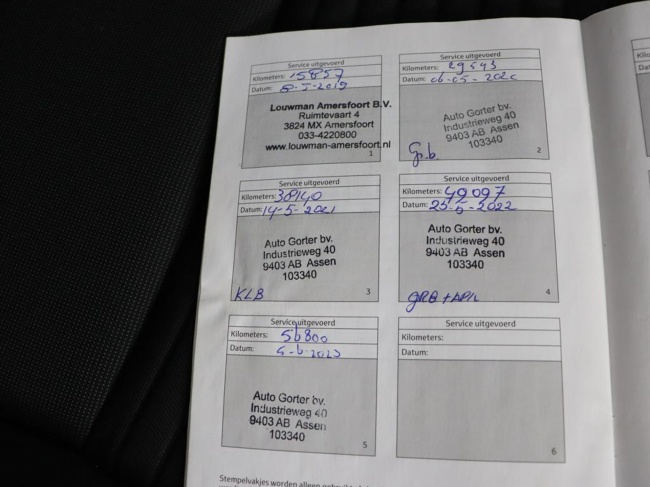 Service uitgevoerd
Kilometers: 15857
Datum: 8-5-2019
Louwman Amersfoort B.V.
Ruimtevaart 4
3824 MX Amersfoort
033-4220800
www.louwman-amersfoort.nl
1
Service uitgevoerd
Kilometers: 29543
Datum: 06-05-2020
Auto Gorter bv.
Industrieweg 40
9403 AB Assen
103340
Gr.b.
2
Service uitgevoerd
Kilometers: 38140
Datum: 14-5-2021
Auto Gorter bv.
Industrieweg 40
9403 AB Assen
103340
KLB
3
Service uitgevoerd
Kilometers: 49097
Datum: 25-5-2022
Auto Gorter bv.
Industrieweg 40
9403 AB Assen
103340
GRB + APK
4
Service uitgevoerd
Kilometers: 56800
Datum: 6-2023
Auto Gorter bv.
Industrieweg 40
9403 AB Assen
103340
5
Service uitgevoerd
Kilometers:
Datum:
6
Stempelvakjes worden alleen